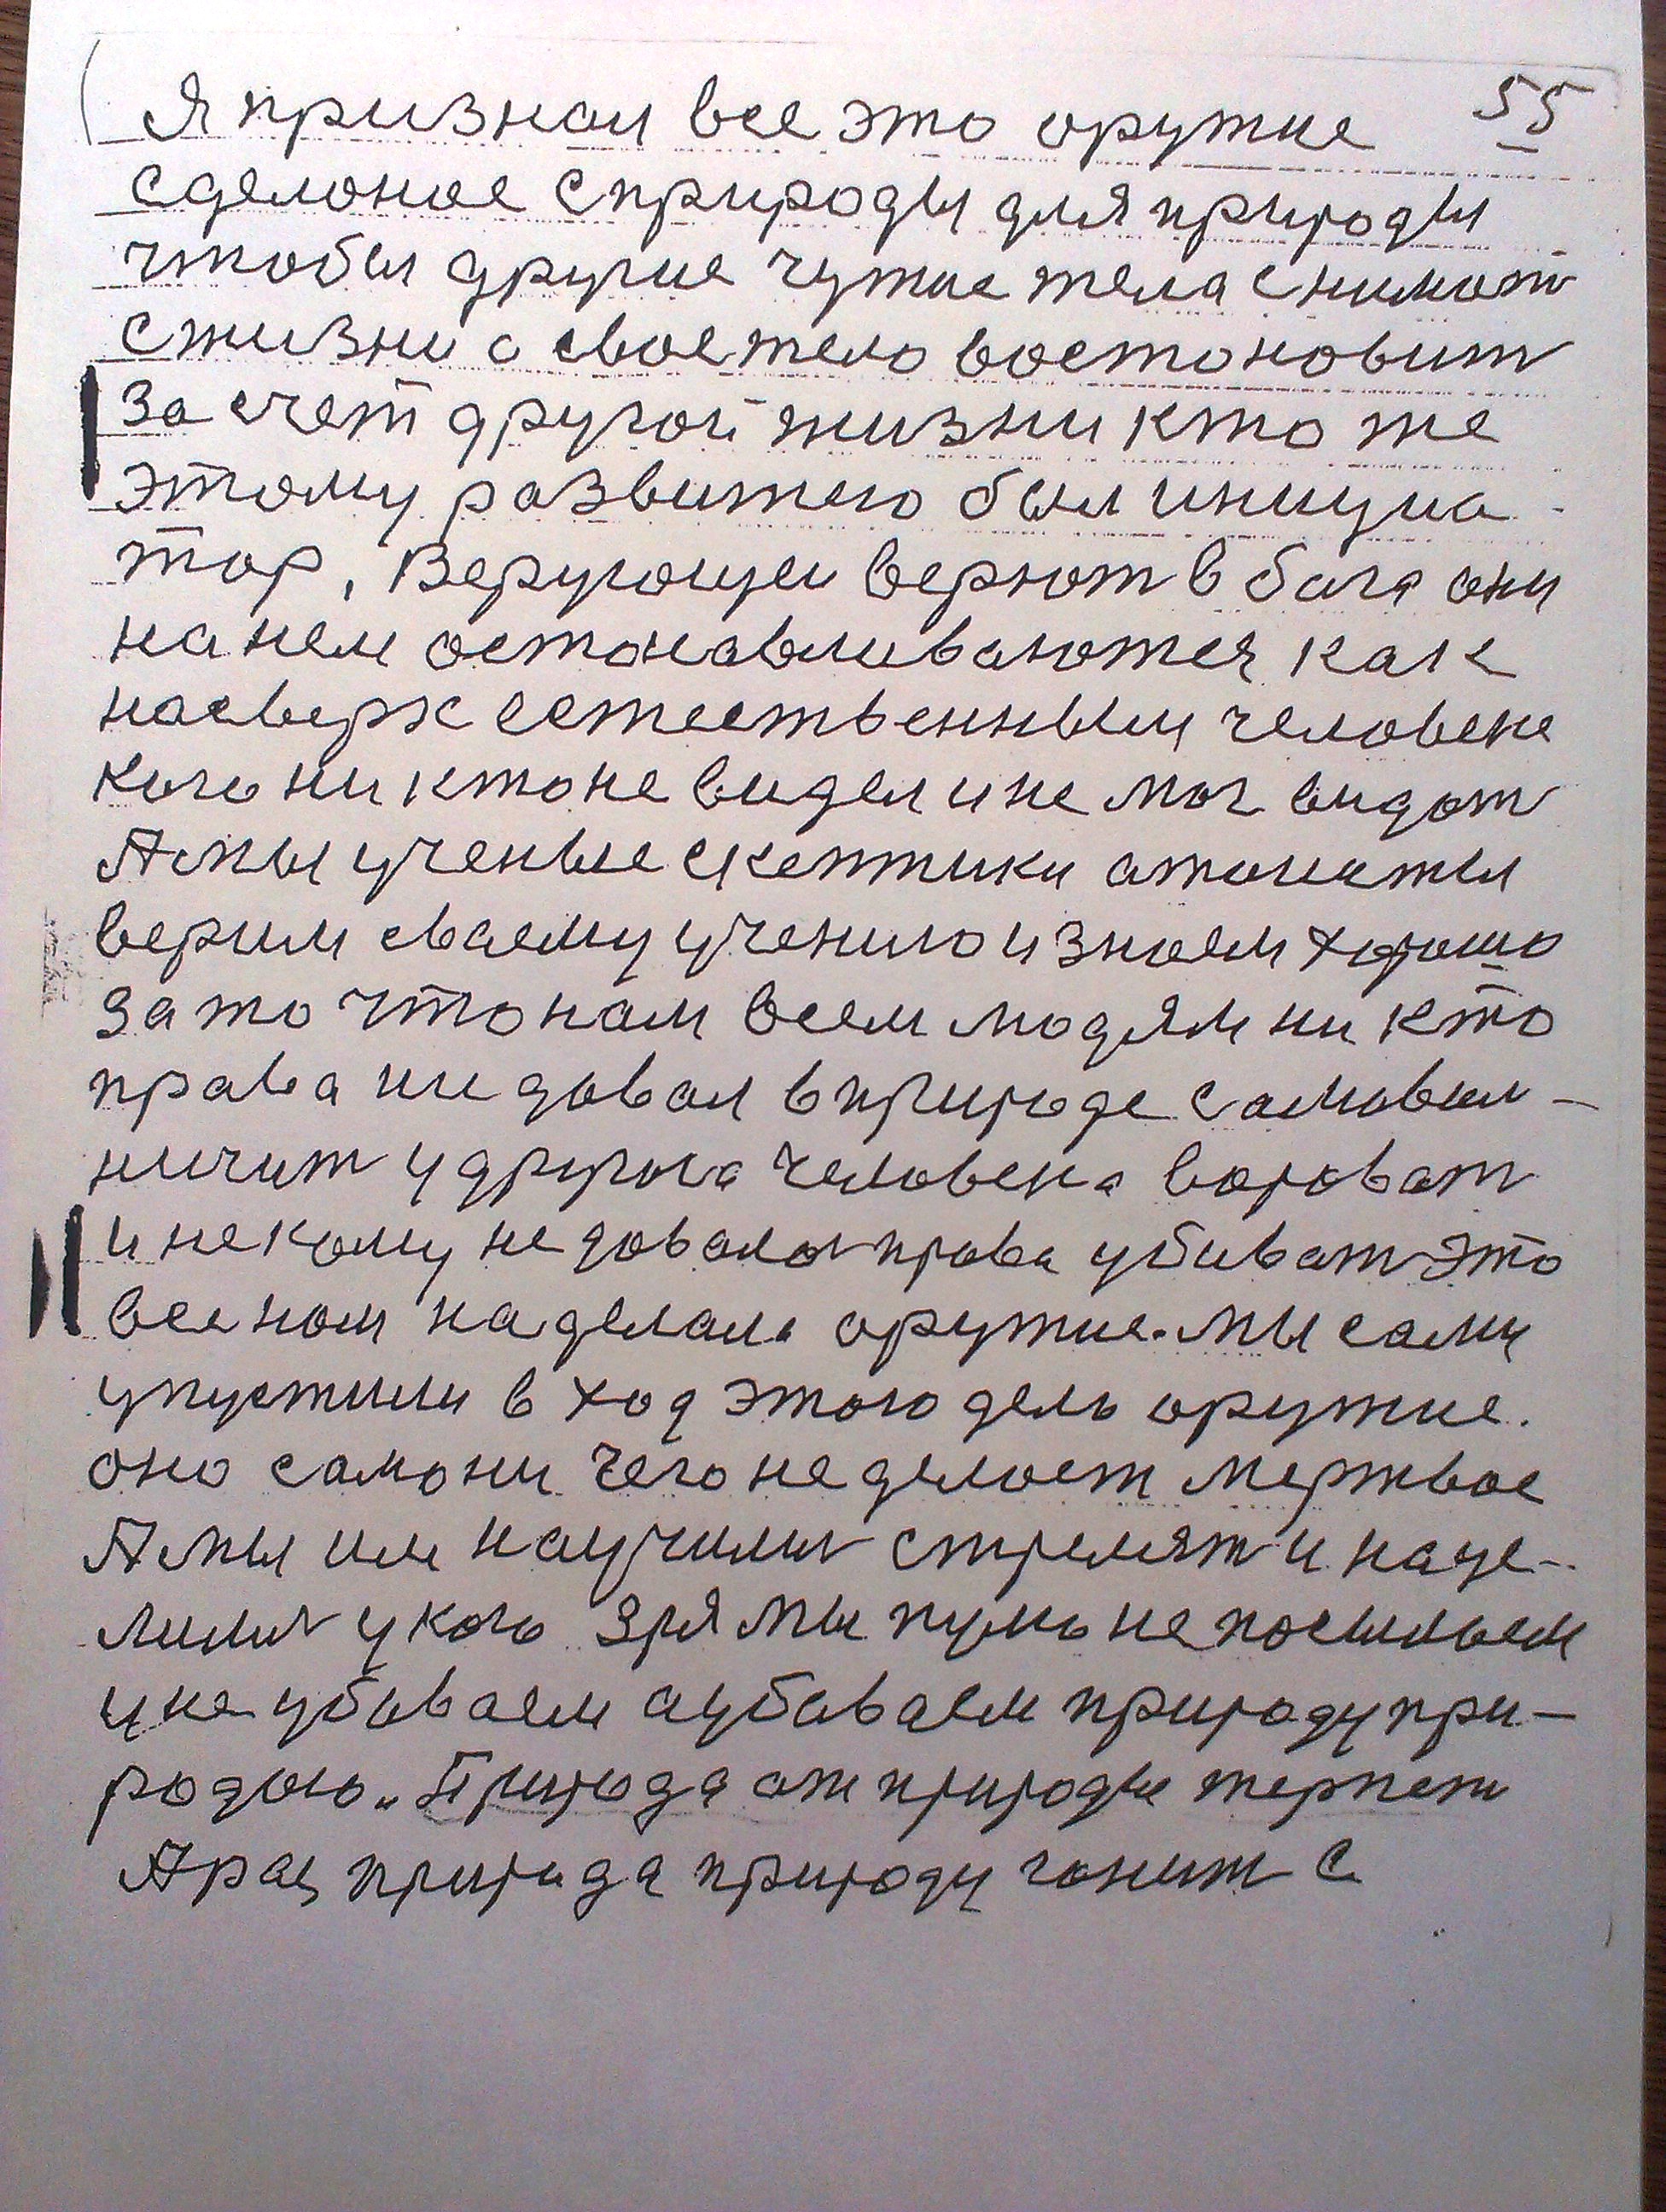 55
Я признал все это оружие
сделоное с природы для природы
чтобы другие чужие тела снимат
с жизни а свое тело востоновит
За счет другой жизни кто же
этому развитею был инициа
тор, Верующеи верют в бога они
на нем остонавливаются как
насверх естественным человеке
кого ни кто не видел и не мог видат
А мы ученые скептики атоисты
верим своему учению и знаем хорошо
За то что нам всем людям ни кто
права ни довал в природе самовол-
ничит у другога человека воровать
и не кому не довала права убиват это
все нам наделала оружие. мы сами
упустили в ход этого дело оружие.
оно само ни чего не делает мертвое
А мы им научились стрелят и наце-
лились у кого зря мы пулю не посылаем
и не убиваем а убиваем природу при-
родою. Природа от природы терпет
А раз природа природу гонит с